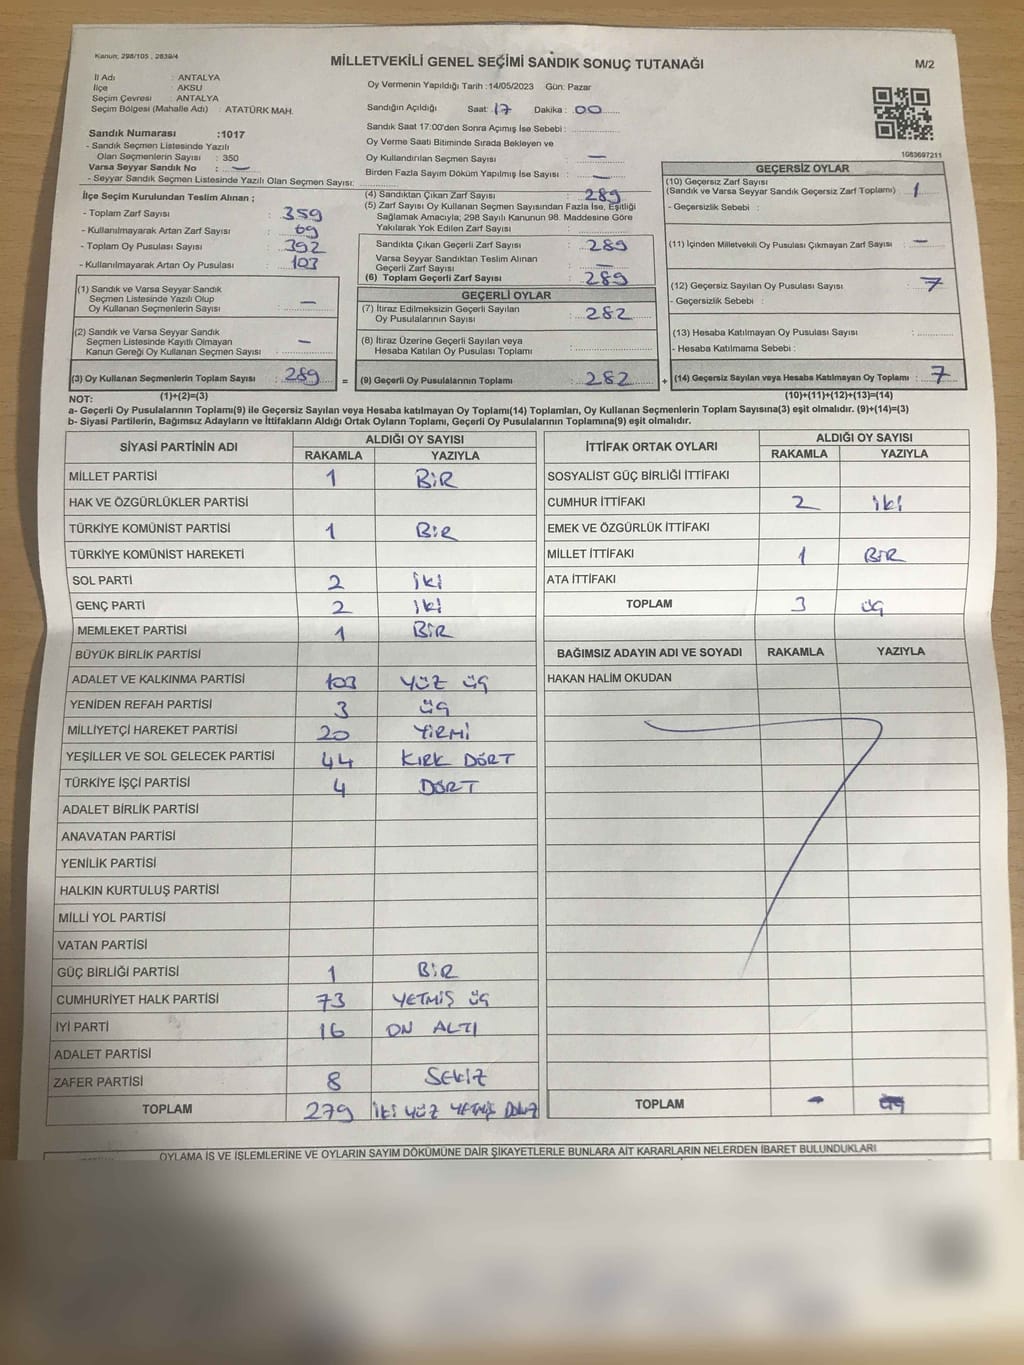 Kanun: 298/105 , 2839/4
MİLLETVEKİLİ GENEL SEÇİMİ SANDIK SONUÇ TUTANAĞI
M/2
İl Adı : ANTALYA
İlçe : AKSU
Seçim Çevresi : ANTALYA
Seçim Bölgesi (Mahalle Adı) : ATATÜRK MAH.
Oy Vermenin Yapıldığı Tarih :14/05/2023 Gün: Pazar
Sandığın Açıldığı Saat: 17 Dakika : 00
Sandık Saat 17:00'den Sonra Açımış İse Sebebi :
Oy Verme Saati Bitiminde Sırada Bekleyen ve
Oy Kullandırılan Seçmen Sayısı : —
Birden Fazla Sayım Döküm Yapılmış İse Sayısı : —
1083697211
Sandık Numarası :1017
- Sandık Seçmen Listesinde Yazılı
Olan Seçmenlerin Sayısı : 350
Varsa Seyyar Sandık No : —
- Seyyar Sandık Seçmen Listesinde Yazılı Olan Seçmen Sayısı:
İlçe Seçim Kurulundan Teslim Alınan ;
- Toplam Zarf Sayısı : 359
- Kullanılmayarak Artan Zarf Sayısı : 69
- Toplam Oy Pusulası Sayısı : 392
- Kullanılmayarak Artan Oy Pusulası : 103
(1) Sandık ve Varsa Seyyar Sandık
Seçmen Listesinde Yazılı Olup
Oy Kullanan Seçmenlerin Sayısı : —
(2) Sandık ve Varsa Seyyar Sandık
Seçmen Listesinde Kayıtlı Olmayan
Kanun Gereği Oy Kullanan Seçmen Sayısı : —
(3) Oy Kullanan Seçmenlerin Toplam Sayısı : 289 =
(4) Sandıktan Çıkan Zarf Sayısı : 289
(5) Zarf Sayısı Oy Kullanan Seçmen Sayısından Fazla İse, Eşitliği
Sağlamak Amacıyla; 298 Sayılı Kanunun 98. Maddesine Göre
Yakılarak Yok Edilen Zarf Sayısı :
Sandıkta Çıkan Geçerli Zarf Sayısı : 289
Varsa Seyyar Sandıktan Teslim Alınan
Geçerli Zarf Sayısı : —
(6) Toplam Geçerli Zarf Sayısı : 289
GEÇERLİ OYLAR
(7) İtiraz Edilmeksizin Geçerli Sayılan
Oy Pusulalarının Sayısı : 282
(8) İtiraz Üzerine Geçerli Sayılan veya
Hesaba Katılan Oy Pusulası Toplamı :
(9) Geçerli Oy Pusulalarının Toplamı : 282 +
GEÇERSİZ OYLAR
(10) Geçersiz Zarf Sayısı
(Sandık ve Varsa Seyyar Sandık Geçersiz Zarf Toplamı) : 1
- Geçersizlik Sebebi :
(11) İçinden Milletvekili Oy Pusulası Çıkmayan Zarf Sayısı : —
(12) Geçersiz Sayılan Oy Pusulası Sayısı : 7
- Geçersizlik Sebebi :
(13) Hesaba Katılmayan Oy Pusulası Sayısı :
- Hesaba Katılmama Sebebi :
(14) Geçersiz Sayılan veya Hesaba Katılmayan Oy Toplamı : 7
NOT: (1)+(2)=(3) (10)+(11)+(12)+(13)=(14)
a- Geçerli Oy Pusulalarının Toplamı(9) ile Geçersiz Sayılan veya Hesaba katılmayan Oy Toplamı(14) Toplamları, Oy Kullanan Seçmenlerin Toplam Sayısına(3) eşit olmalıdır. (9)+(14)=(3)
b- Siyasi Partilerin, Bağımsız Adayların ve İttifakların Aldığı Ortak Oyların Toplamı, Geçerli Oy Pusulalarının Toplamına(9) eşit olmalıdır.
SİYASİ PARTİNİN ADI ALDIĞI OY SAYISI
RAKAMLA YAZIYLA
MİLLET PARTİSİ 1 BİR
HAK VE ÖZGÜRLÜKLER PARTİSİ
TÜRKİYE KOMÜNİST PARTİSİ 1 BİR
TÜRKİYE KOMÜNİST HAREKETİ
SOL PARTİ 2 İKİ
GENÇ PARTİ 2 İKİ
MEMLEKET PARTİSİ 1 BİR
BÜYÜK BİRLİK PARTİSİ
ADALET VE KALKINMA PARTİSİ 103 YÜZ ÜÇ
YENİDEN REFAH PARTİSİ 3 ÜÇ
MİLLİYETÇİ HAREKET PARTİSİ 20 YİRMİ
YEŞİLLER VE SOL GELECEK PARTİSİ 44 KIRK DÖRT
TÜRKİYE İŞÇİ PARTİSİ 4 DÖRT
ADALET BİRLİK PARTİSİ
ANAVATAN PARTİSİ
YENİLİK PARTİSİ
HALKIN KURTULUŞ PARTİSİ
MİLLİ YOL PARTİSİ
VATAN PARTİSİ
GÜÇ BİRLİĞİ PARTİSİ 1 BİR
CUMHURİYET HALK PARTİSİ 73 YETMİŞ ÜÇ
İYİ PARTİ 16 ON ALTI
ADALET PARTİSİ
ZAFER PARTİSİ 8 SEKİZ
TOPLAM 279 İKİ YÜZ YETMİŞ DOKUZ
İTTİFAK ORTAK OYLARI ALDIĞI OY SAYISI
RAKAMLA YAZIYLA
SOSYALİST GÜÇ BİRLİĞİ İTTİFAKI
CUMHUR İTTİFAKI 2 İKİ
EMEK VE ÖZGÜRLÜK İTTİFAKI
MİLLET İTTİFAKI 1 BİR
ATA İTTİFAKI
TOPLAM 3 ÜÇ
BAĞIMSIZ ADAYIN ADI VE SOYADI RAKAMLA YAZIYLA
HAKAN HALİM OKUDAN
TOPLAM -
OYLAMA İŞ VE İŞLEMLERİNE VE OYLARIN SAYIM DÖKÜMÜNE DAİR ŞİKAYETLERLE BUNLARA AİT KARARLARIN NELERDEN İBARET BULUNDUKLARI